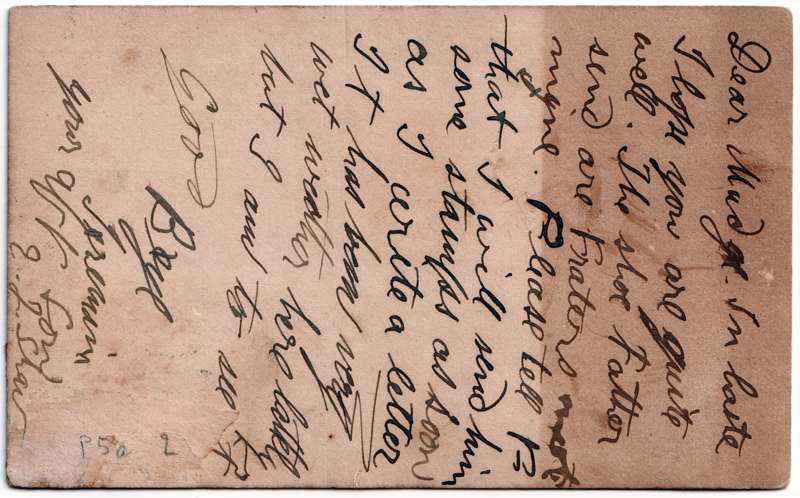 Dear Madge. In haste
I hope you are quite
well. The shoe Father
send are Fraters not
mine. Please tell F
that I will send him
some stamps as soon
as I write a letter
It has been very
wet weather here lately
but I am to see
Good
Bye
your
P5a 2